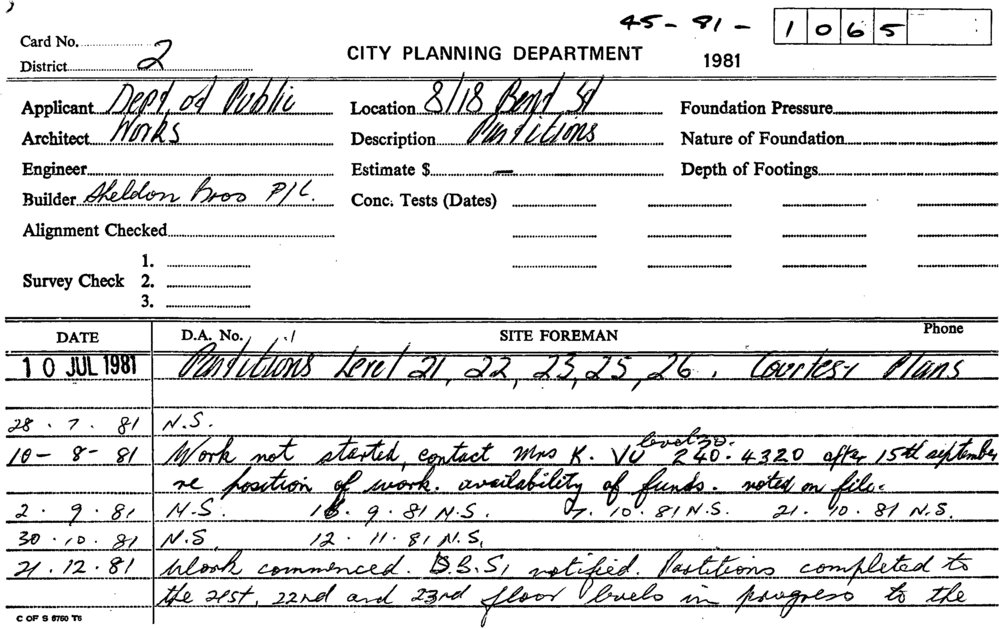 45-81-1065
Card No.
District 2
CITY PLANNING DEPARTMENT 1981
Applicant Dept. of Public Location 8/18 Bent St Foundation Pressure
Architect Works Description Partitions Nature of Foundation
Engineer Estimate $ — Depth of Footings
Builder Sheldon Bros P/L. Conc. Tests (Dates)
Alignment Checked
1.
Survey Check 2.
3.
DATE D.A. No. SITE FOREMAN Phone
10 JUL 1981 Partitions Level 21, 22, 23, 25, 26. Courtesy Plans
28.7.81 N.S.
level 20.
10-8-81 Work not started, contact Mrs K. VU 240.4320 after 15th september
re position of work. availability of funds. noted on file.
2.9.81 N.S. 16.9.81 N.S. 7.10.81 N.S. 21.10.81 N.S.
30.10.81 N.S. 12.11.81 N.S.
21.12.81 Work commenced. B.B.S. notified. Partitions completed to
the 21st, 22nd and 23rd floor levels in progress to the
C OF S 6750 T6